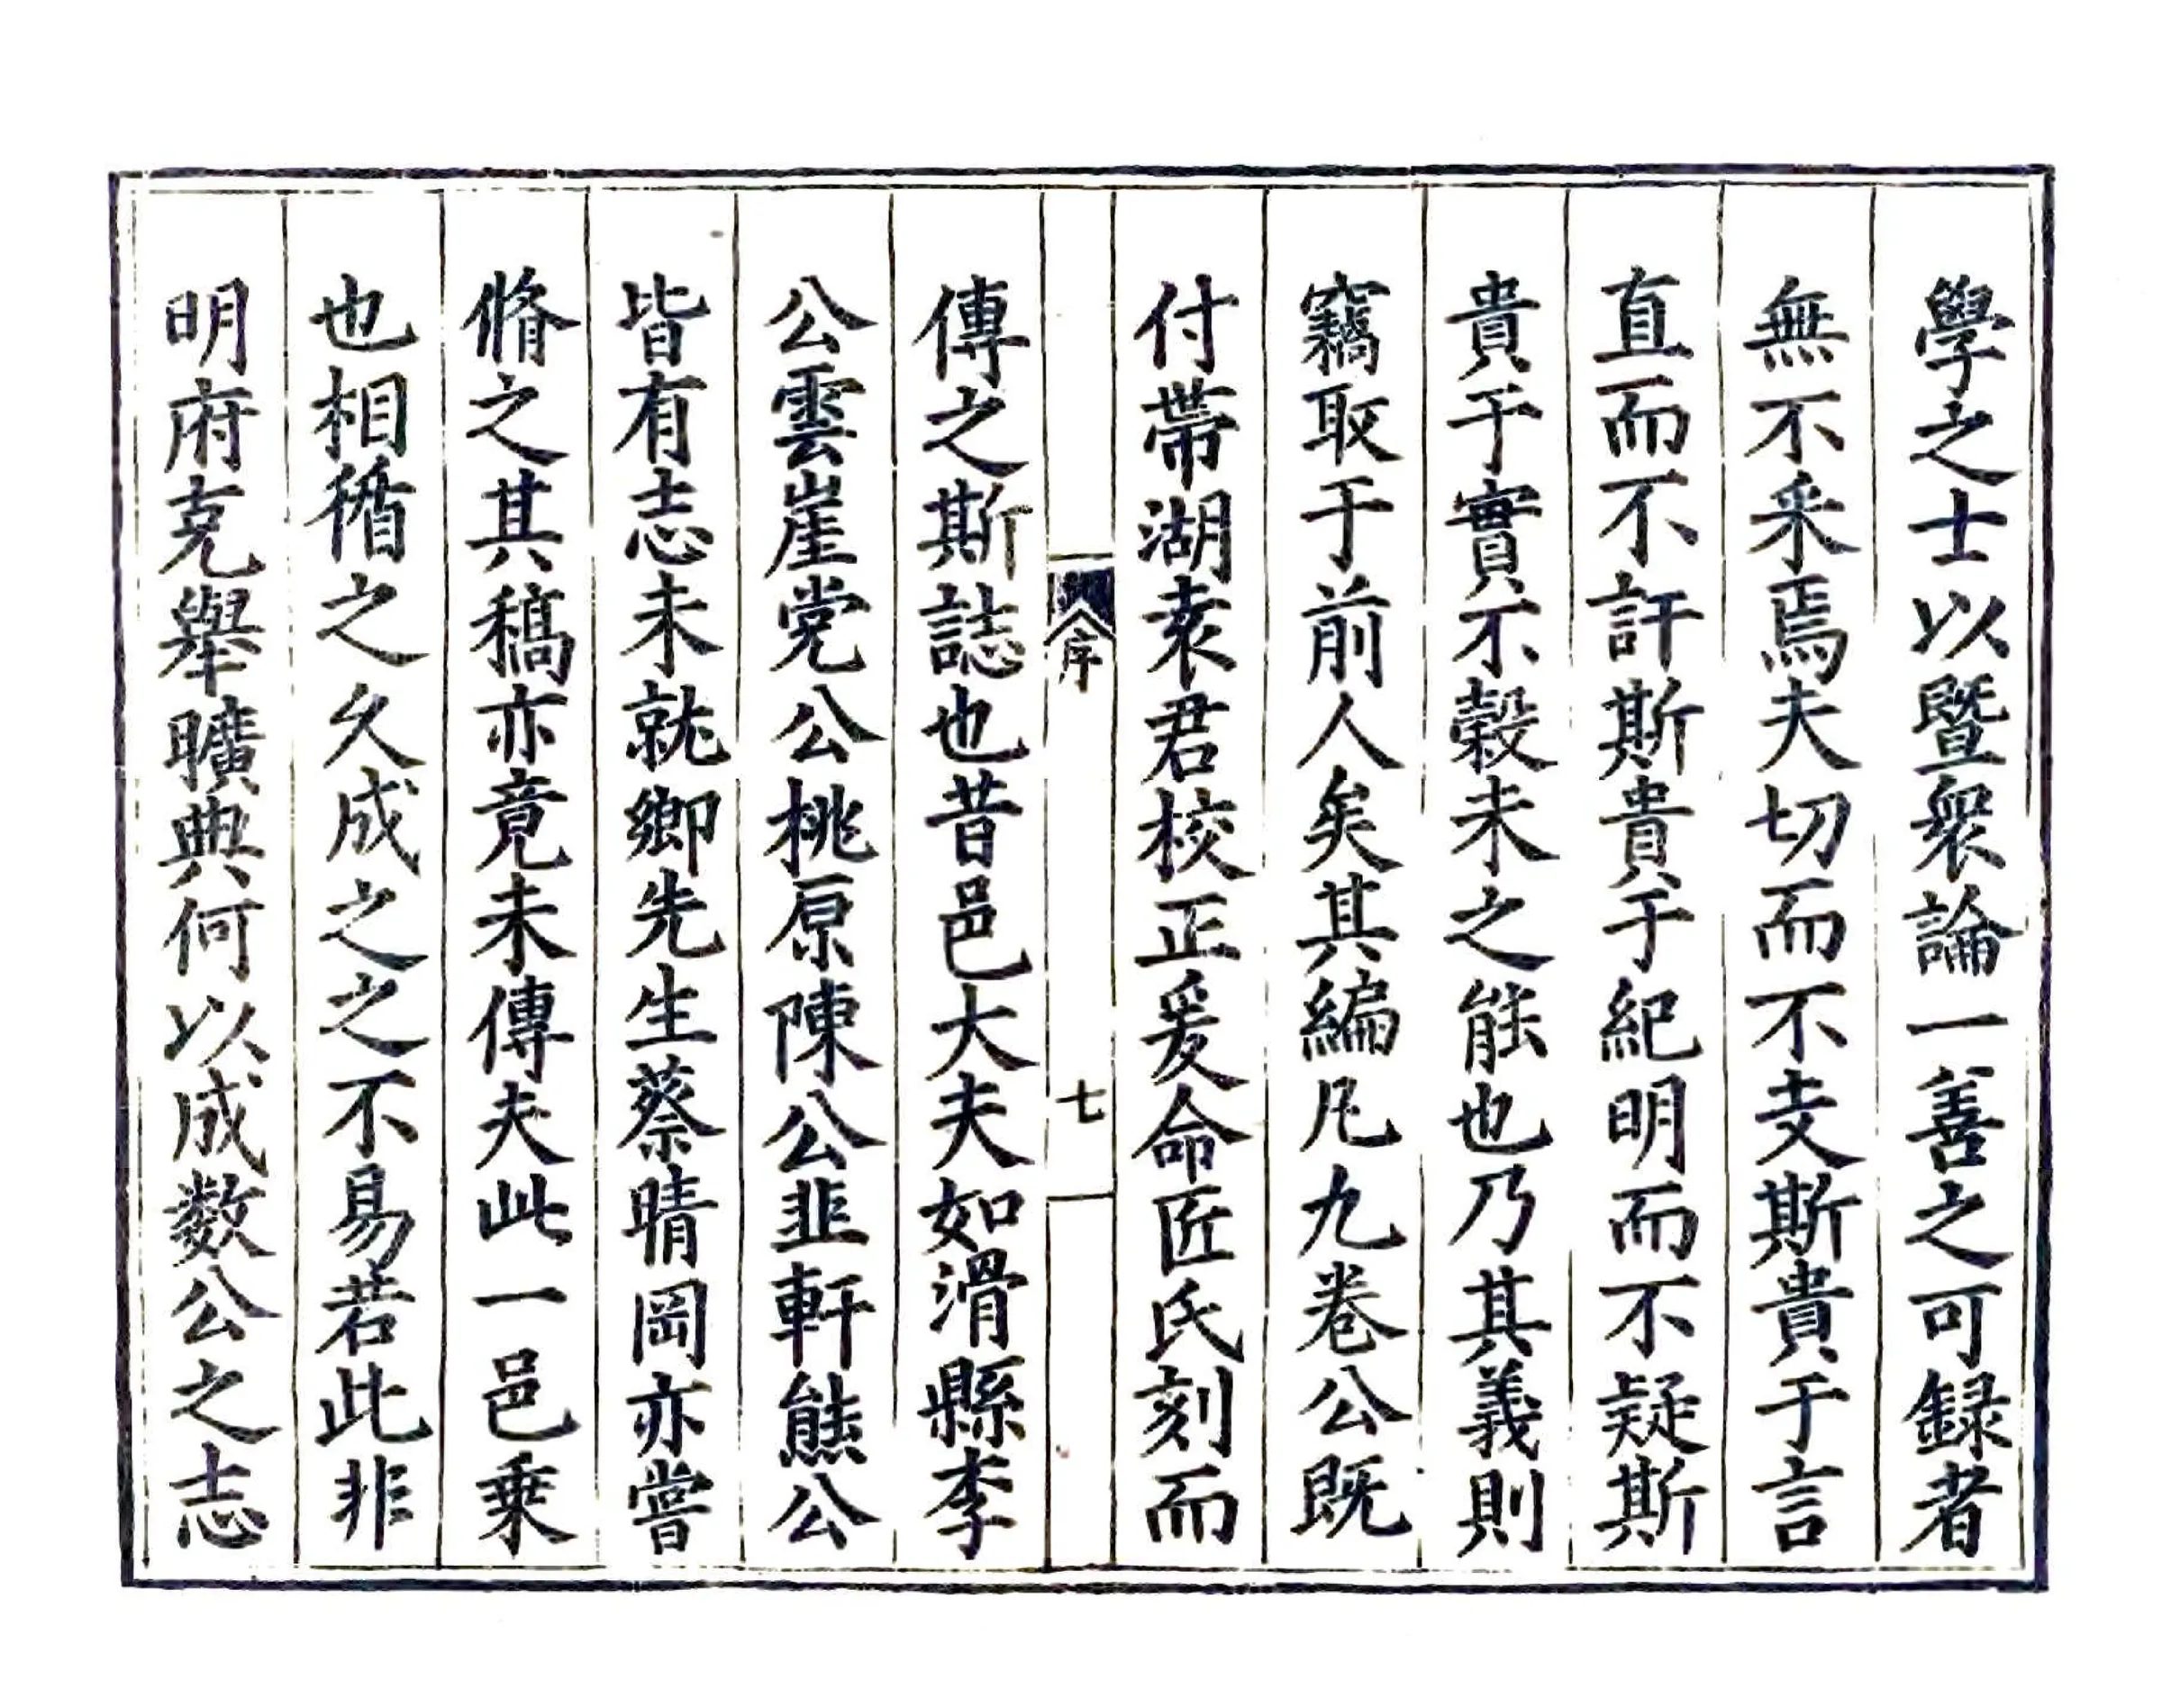 學之士以暨衆論一善之可録者
無不采焉夫切而不支斯貴于言
直而不訐斯貴于紀明而不疑斯
貴于實不穀未之能也乃其義則
竊取于前人矣其編凡九卷公既
付帶湖袁君校正爰命匠氏刻而
序
七
傳之斯誌也昔邑大夫如滑縣李
公雲崖党公桃原陳公韭軒熊公
皆有志未就鄉先生蔡晴岡亦嘗
脩之其稿亦竟未傳夫此一邑乗
也相循之久成之之不易若此非
明府克舉曠典何以成数公之志